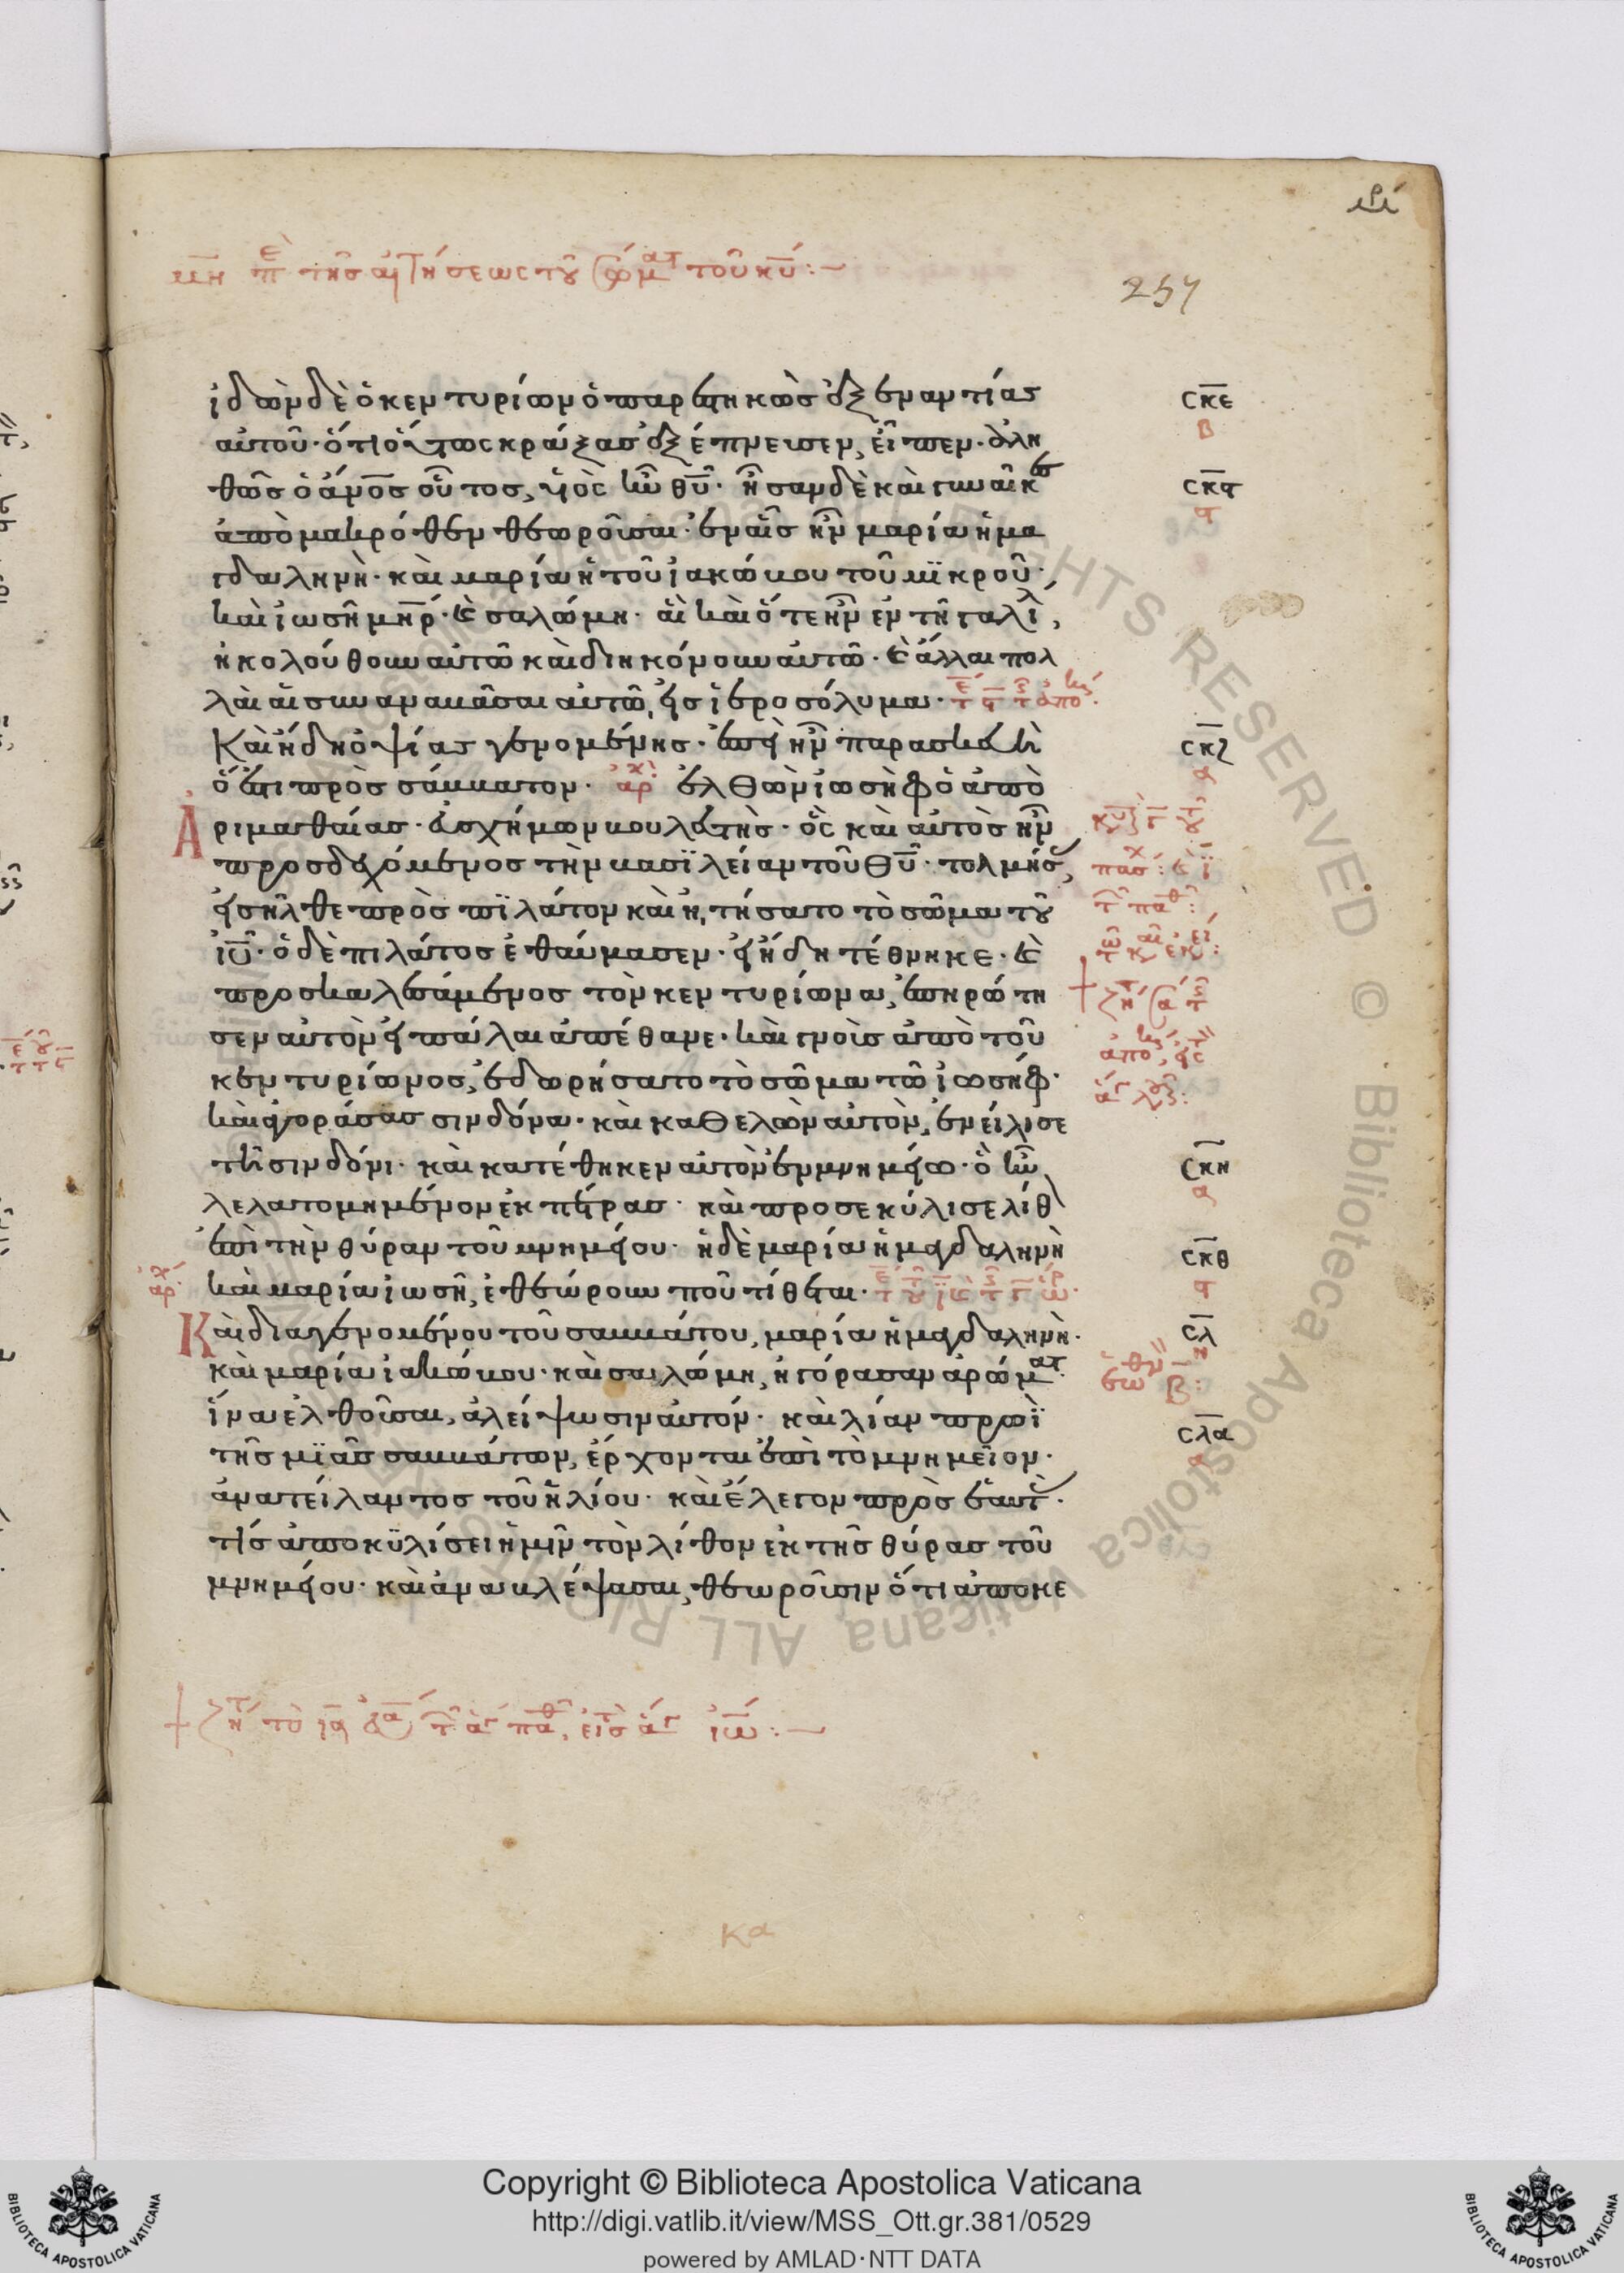 μη περὶ τῆς αἰτήσεως τοῦ σώματ τοῦ κυ:~
257
ἰδὼν δὲ ὁ κεντυρίων ὁ παρεστηκὼς ἐξ ἐναντίας
αὐτοῦ· ὅτι οὕτως κράξας ἐξέπνευσεν, εἶπεν· ἀλη
θῶς ὁ ἄνος οὗτος, υἱὸς ἦν θυ· ἦσαν δὲ καὶ γυναῖκες
ἀπὸ μακρόθεν θεωροῦσαι· ἐν αἷς ἦν μαρία ἡ μα
γδαληνὴ· καὶ μαρία ἡ τοῦ ἰακώβου τοῦ μϊκροῦ·
καὶ ἰωσῆ μηρ· καὶ σαλώμη· αἳ καὶ ὅτε ἦν ἐν τῆ γαλι,
ἠκολούθουν αὐτῶ καὶ διηκόνουν αὐτῶ· καὶ ἄλλαι πολ
λαὶ αἱ συναναβᾶσαι αὐτῶ, εἰς ἱεροσόλυμα·
Καὶ ἤδη ὀψίας γενομένης· ἐπεὶ ἦν παρασκευὴ
ὅ ἐστι πρὸς σάββατον· ἀρχ ἐλθὼν ἰωσὴφ ὁ ἀπὸ
Ἀριμαθαίας· εὐσχήμων βουλευτὴς· ὃς καὶ αὐτὸς ἦν
προσδεχόμενος τὴν βασϊλείαν τοῦ θυ· τολμήσας,
εἰσῆλθε πρὸς πϊλάτον καὶ ἠτήσατο τὸ σῶμα τοῦ
ιυ· ὁ δὲ πιλάτος ἐθαύμασεν· εἰ ἤδη τέθνηκε· καὶ
προσκαλεσάμενος τὸν κεντυρίωνα, ἐπηρώτη
σεν αὐτὸν εἰ πάλαι ἀπέθανε· καὶ γνοὺς ἀπὸ τοῦ
κεντυρίωνος, ἐδωρήσατο τὸ σῶμα τῶ ἰωσήφ·
καὶ ἀγοράσας σινδόνα· καὶ καθελὼν αὐτὸν, ἐνείλισε
τῆ σινδόνι· καὶ κατέθηκεν αὐτὸν ἐν μνημείω· ὃ ἦν
λελατομημένον ἐκ πέτρας· καὶ προσεκύλισε λίθον
ἐπὶ τὴν θύραν τοῦ μνημείου· ἡ δὲ μαρία ἡ μαγδαληνὴ
καὶ μαρία ἰωσῆ, ἐθεώρουν ποῦ τίθεται·
Καὶ διαγενομένου τοῦ σαββάτου, μαρία ἡ μαγδαληνὴ·
καὶ μαρία ἰακώβου· καὶ σαλώμη, ἠγόρασαν ἀρώματ·
ἵνα ἐλθοῦσαι, ἀλείψωσιν αὐτόν· καὶ λίαν πρωῒ
τῆς μϊᾶς σαββάτων, ἔρχονται ἐπὶ τὸ μνημεῖον·
ἀνατείλαντος τοῦ ἡλίου· καὶ ἔλεγον πρὸς ἑαυτάς·
τίς ἀποκϋλίσει ἡμῖν τὸν λίθον ἐκ τῆς θύρας τοῦ
μνημείου· καὶ ἀναβλέψασαι, θεωροῦσιν ὅτι ἀποκε
σκε
β
σκϛ
ϛ
σκζ
α
σκη
α
σκθ
ϛ
σλ
η
σλα
α
κα
Copyright © Biblioteca Apostolica Vaticana ALL RIGHTS RESERVED
Copyright © Biblioteca Apostolica Vaticana
http://digi.vatlib.it/view/MSS_Ott.gr.381/0529
powered by AMLAD·NTT DATA
BIBLIOTECA APOSTOLICA VATICANA
BIBLIOTECA APOSTOLICA VATICANA